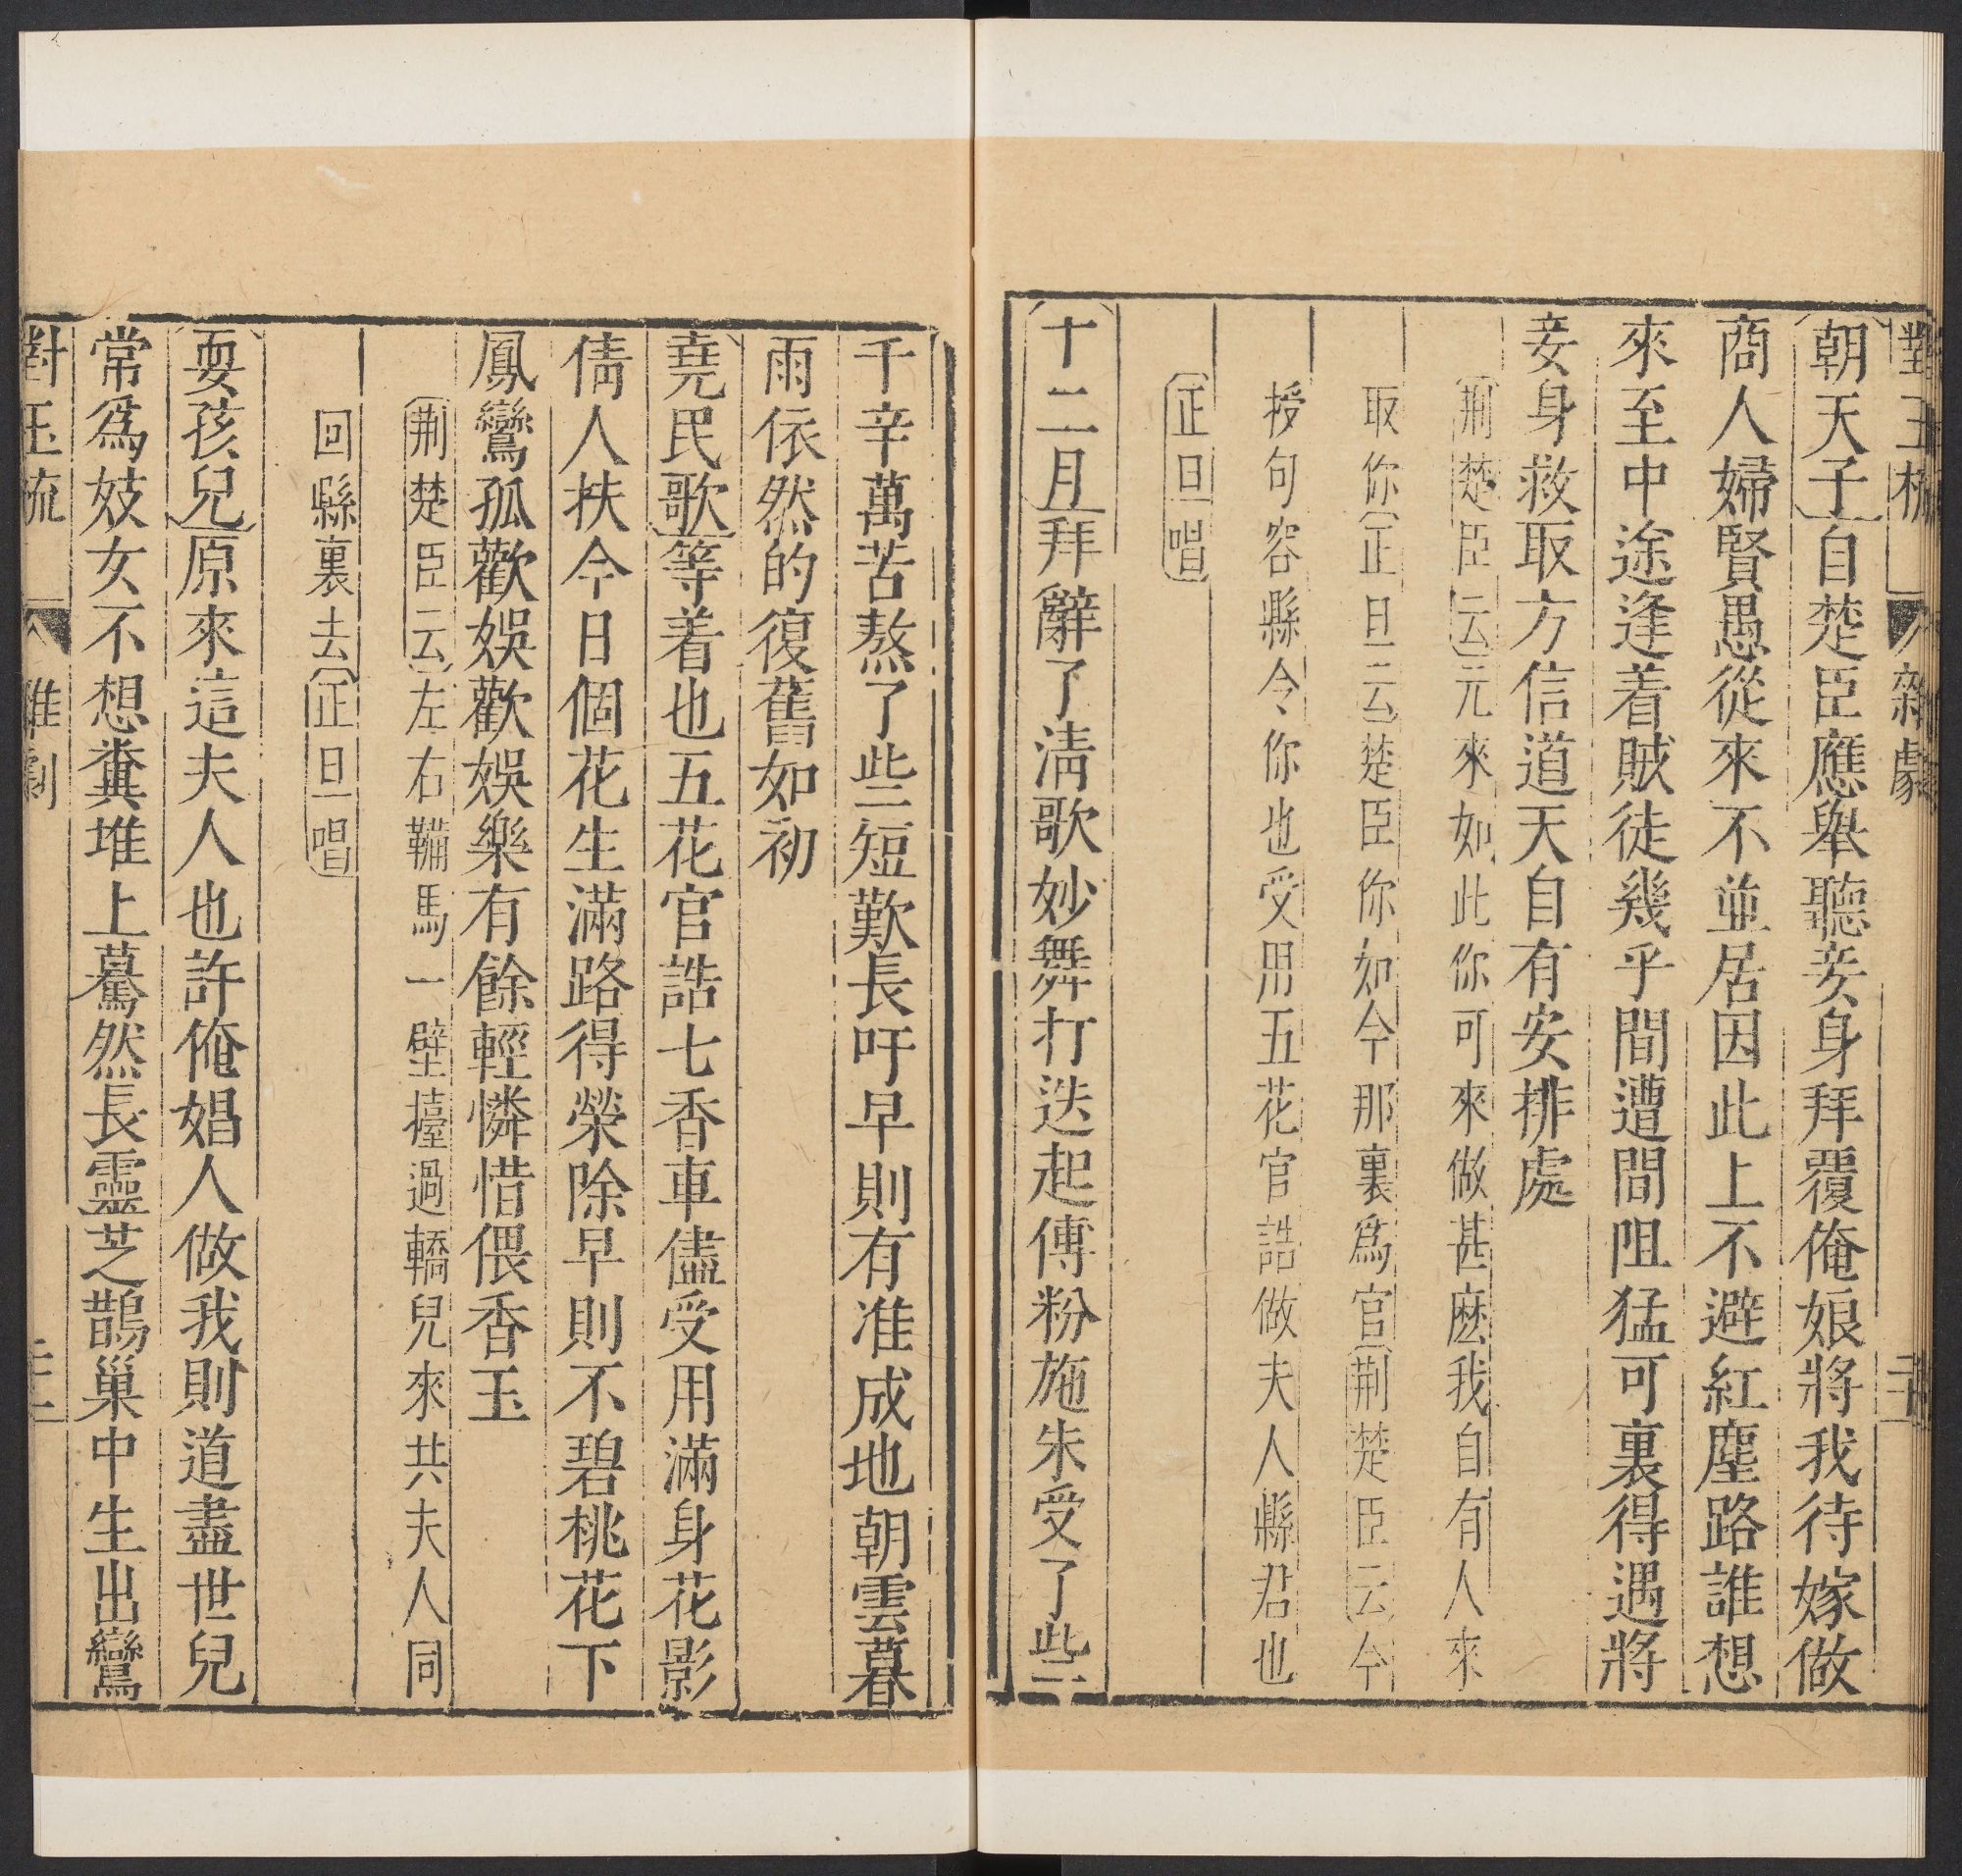 對玉梳 雜劇 二十
朝天子自楚臣應舉聽妾身拜覆俺娘將我待嫁做
商人婦賢愚從來不並居因此上不避紅塵路誰想
來至中途逢着賊徒幾乎間遭間阻猛可裏得遇將
妾身救取方信道天自有安排處
荆楚臣云元來如此你可來做甚麽我自有人來
取你正旦云楚臣你如今那裏爲官荆楚臣云今
授句容縣令你也受用五花官誥做夫人縣君也
正旦唱
十二月拜辭了淸歌妙舞打迭起傅粉施朱受了些
千辛萬苦熬了些短歎長吁早則有准成地朝雲暮
雨依然的復舊如初
堯民歌等着也五花官誥七香車儘受用滿身花影
倩人扶今日個花生滿路得榮除早則不碧桃花下
鳳鸞孤歡娛歡娛樂有餘輕憐惜偎香玉
荆楚臣云左右鞴馬一壁擡過轎兒來共夫人同
回縣裏去正旦唱
耍孩兒原來這夫人也許俺娼人做我則道盡世兒
常爲妓女不想糞堆上驀然長靈芝鵲巢中生出鸞
對玉梳 雜劇